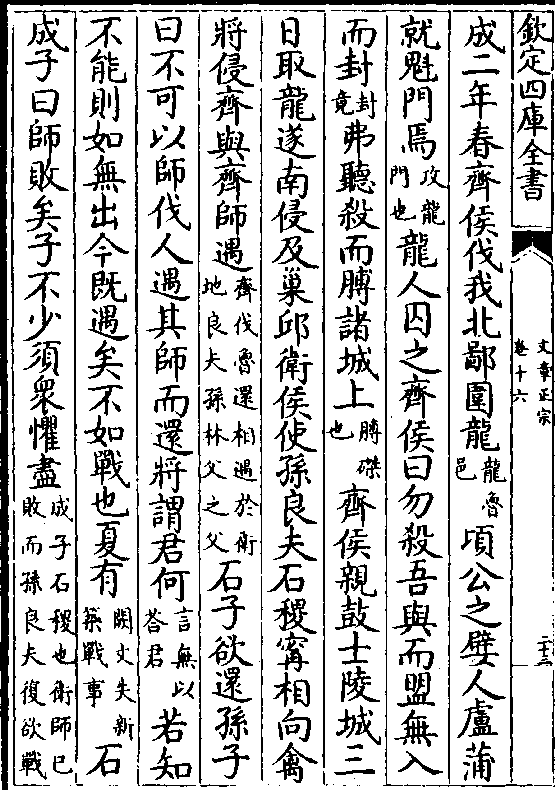 欽定四庫全書
文章正宗
卷十六
二十三
成二年春齊侯伐我北鄙圍龍龍魯邑頃公之嬖人盧蒲
就魁門焉攻龍門也龍人囚之齊侯曰勿殺吾與而盟無入
而封封竟弗聽殺而膊諸城上膊磔也齊侯親鼓士陵城三
日取龍遂南侵及巢邱衛侯使孫良夫石稷甯相向禽
將侵齊與齊師遇齊伐魯還相遇於衛地良夫孫林父之父石子欲還孫子
曰不可以師伐人遇其師而還將謂君何言無以荅君若知
不能則如無出今既遇矣不如戰也夏有闕文失新築戰事石
成子曰師敗矣子不少須衆懼盡成子石稷也衛師已敗而孫良夫復欲戰